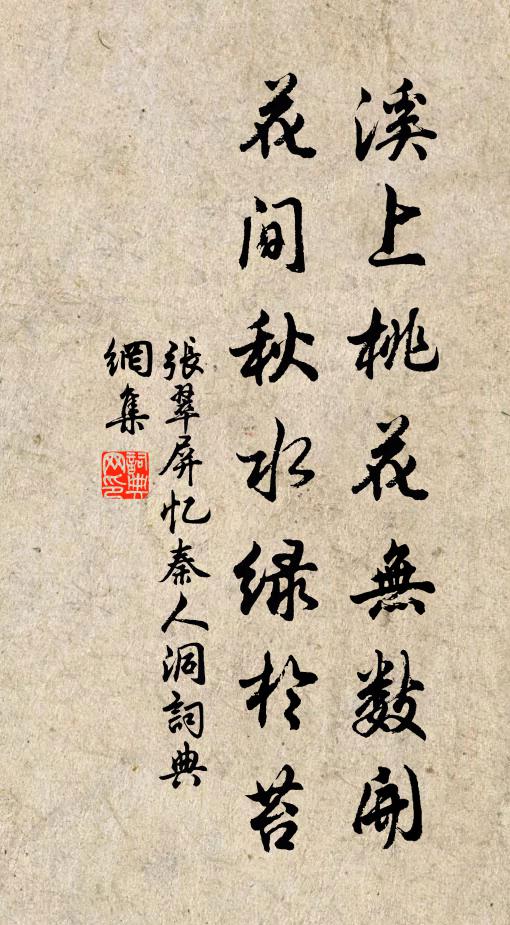 溪上桃花無数開
花間秋水綠於苔
張翠屏忆秦人洞詞典
網集
詞典網印